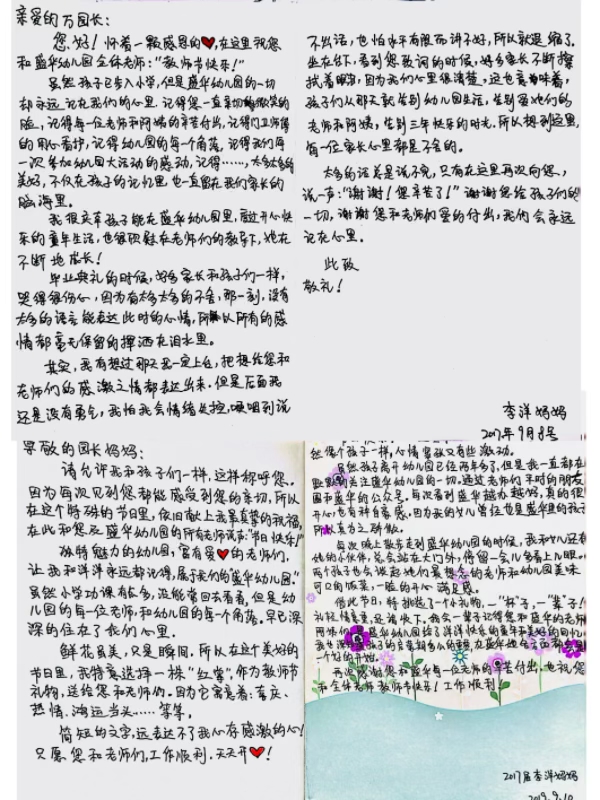 亲爱的万园长:
您好!怀着一颗感恩的❤,在这里祝您
和盛华幼儿园全体老师:"教师节快乐!"
虽然孩子已步入小学,但是盛华幼儿园的一切
却永远记在我们的心里。记得您一直亲切的微笑的
脸,记得每一位老师和阿姨的辛苦付出,记得门卫师傅
的用心看护,记得幼儿园的每个角落,记得我们每
一次参加幼儿园大活动的感动,记得……,太多太多的
美好,不仅在孩子的记忆里,也一直留在我们家长的
脑海里。
我很庆幸孩子能在盛华幼儿园里,度过开心快
乐的童年生活,也很欣慰在老师们的教导下,她在
不断地成长!
毕业典礼的时候,好多家长和孩子们一样,
哭得很伤心,因为有太多太多的不舍,那一刻,没有
太多的语言能表达此时的心情,所以所有的感
情都毫无保留的挥洒在泪水里。
其实,我有想过那天我一定上台,把想给您和
老师们的感激之情都表达出来。但是后面我
还是没有勇气,我怕我会情绪失控,哽咽到说
不出话,也怕水平有限而讲不好,所以就退缩了。
坐在台下,看到您致词的时候,好多家长不断擦
拭着眼泪,因为我们心里很清楚,这也意味着,
孩子们从那天就告别幼儿园生活,告别爱她们的
老师和阿姨,告别三年快乐的时光,所以想到这里,
每一位家长心里都是不舍的。
太多的话总是说不完,只有在这里再次向您,
说一声:"谢谢!您辛苦了!"谢谢您给孩子们的
一切,谢谢您和老师们爱的付出,我们会永远
记在心里。
此致
敬礼!
李洋妈妈
2017年9月8号
尊敬的园长妈妈:
请允许我和孩子们一样,这样称呼您。
因为每次见到您都能感受到您的亲切,所以
在这个特殊的节日里,依旧献上我最真挚的祝福,
在此和您及盛华幼儿园的所有老师说声:"节日快乐!"
独特魅力的幼儿园,富有爱❤的老师们,
让我和洋洋永远都记得,属于我们的"盛华幼儿园"。
虽然小学功课有些多,没能常回去看看,但是幼
儿园的每一位老师,和幼儿园的每一个角落。早已深
深的住在了我们心里。
鲜花虽美,只是瞬间,所以在这个美好的
节日里,我特意选择一株"红掌",作为教师节
礼物,送给您和老师们。因为它寓意着:喜庆、
热情、鸿运当头……等等。
简短的文字,远表达不了我心存感激的心!
只愿您和老师们,工作顺利,天天开❤!
虽然孩子离开幼儿园已经两年多了,但是我一直都在
默默的关注盛华幼儿园的一切。通过老师们平时的朋友
圈和盛华的公众号,每次看到盛华越办越好,真的很
开心,也有种自豪感。因为我的女儿曾经也是盛华里的孩子,
所以真为之骄傲。
每次晚上散步走到盛华幼儿园的时候,我和女儿还有
她的小伙伴,总会站在大门外,停留一会儿
两个孩子也会说起她们最想念的老师和幼儿园美味
可口的饭菜,一脸的开心满足感。
借此节日,特别挑了一个小礼物,"一"杯"子,一"辈"子!
2017届李洋妈妈
2019.9.10